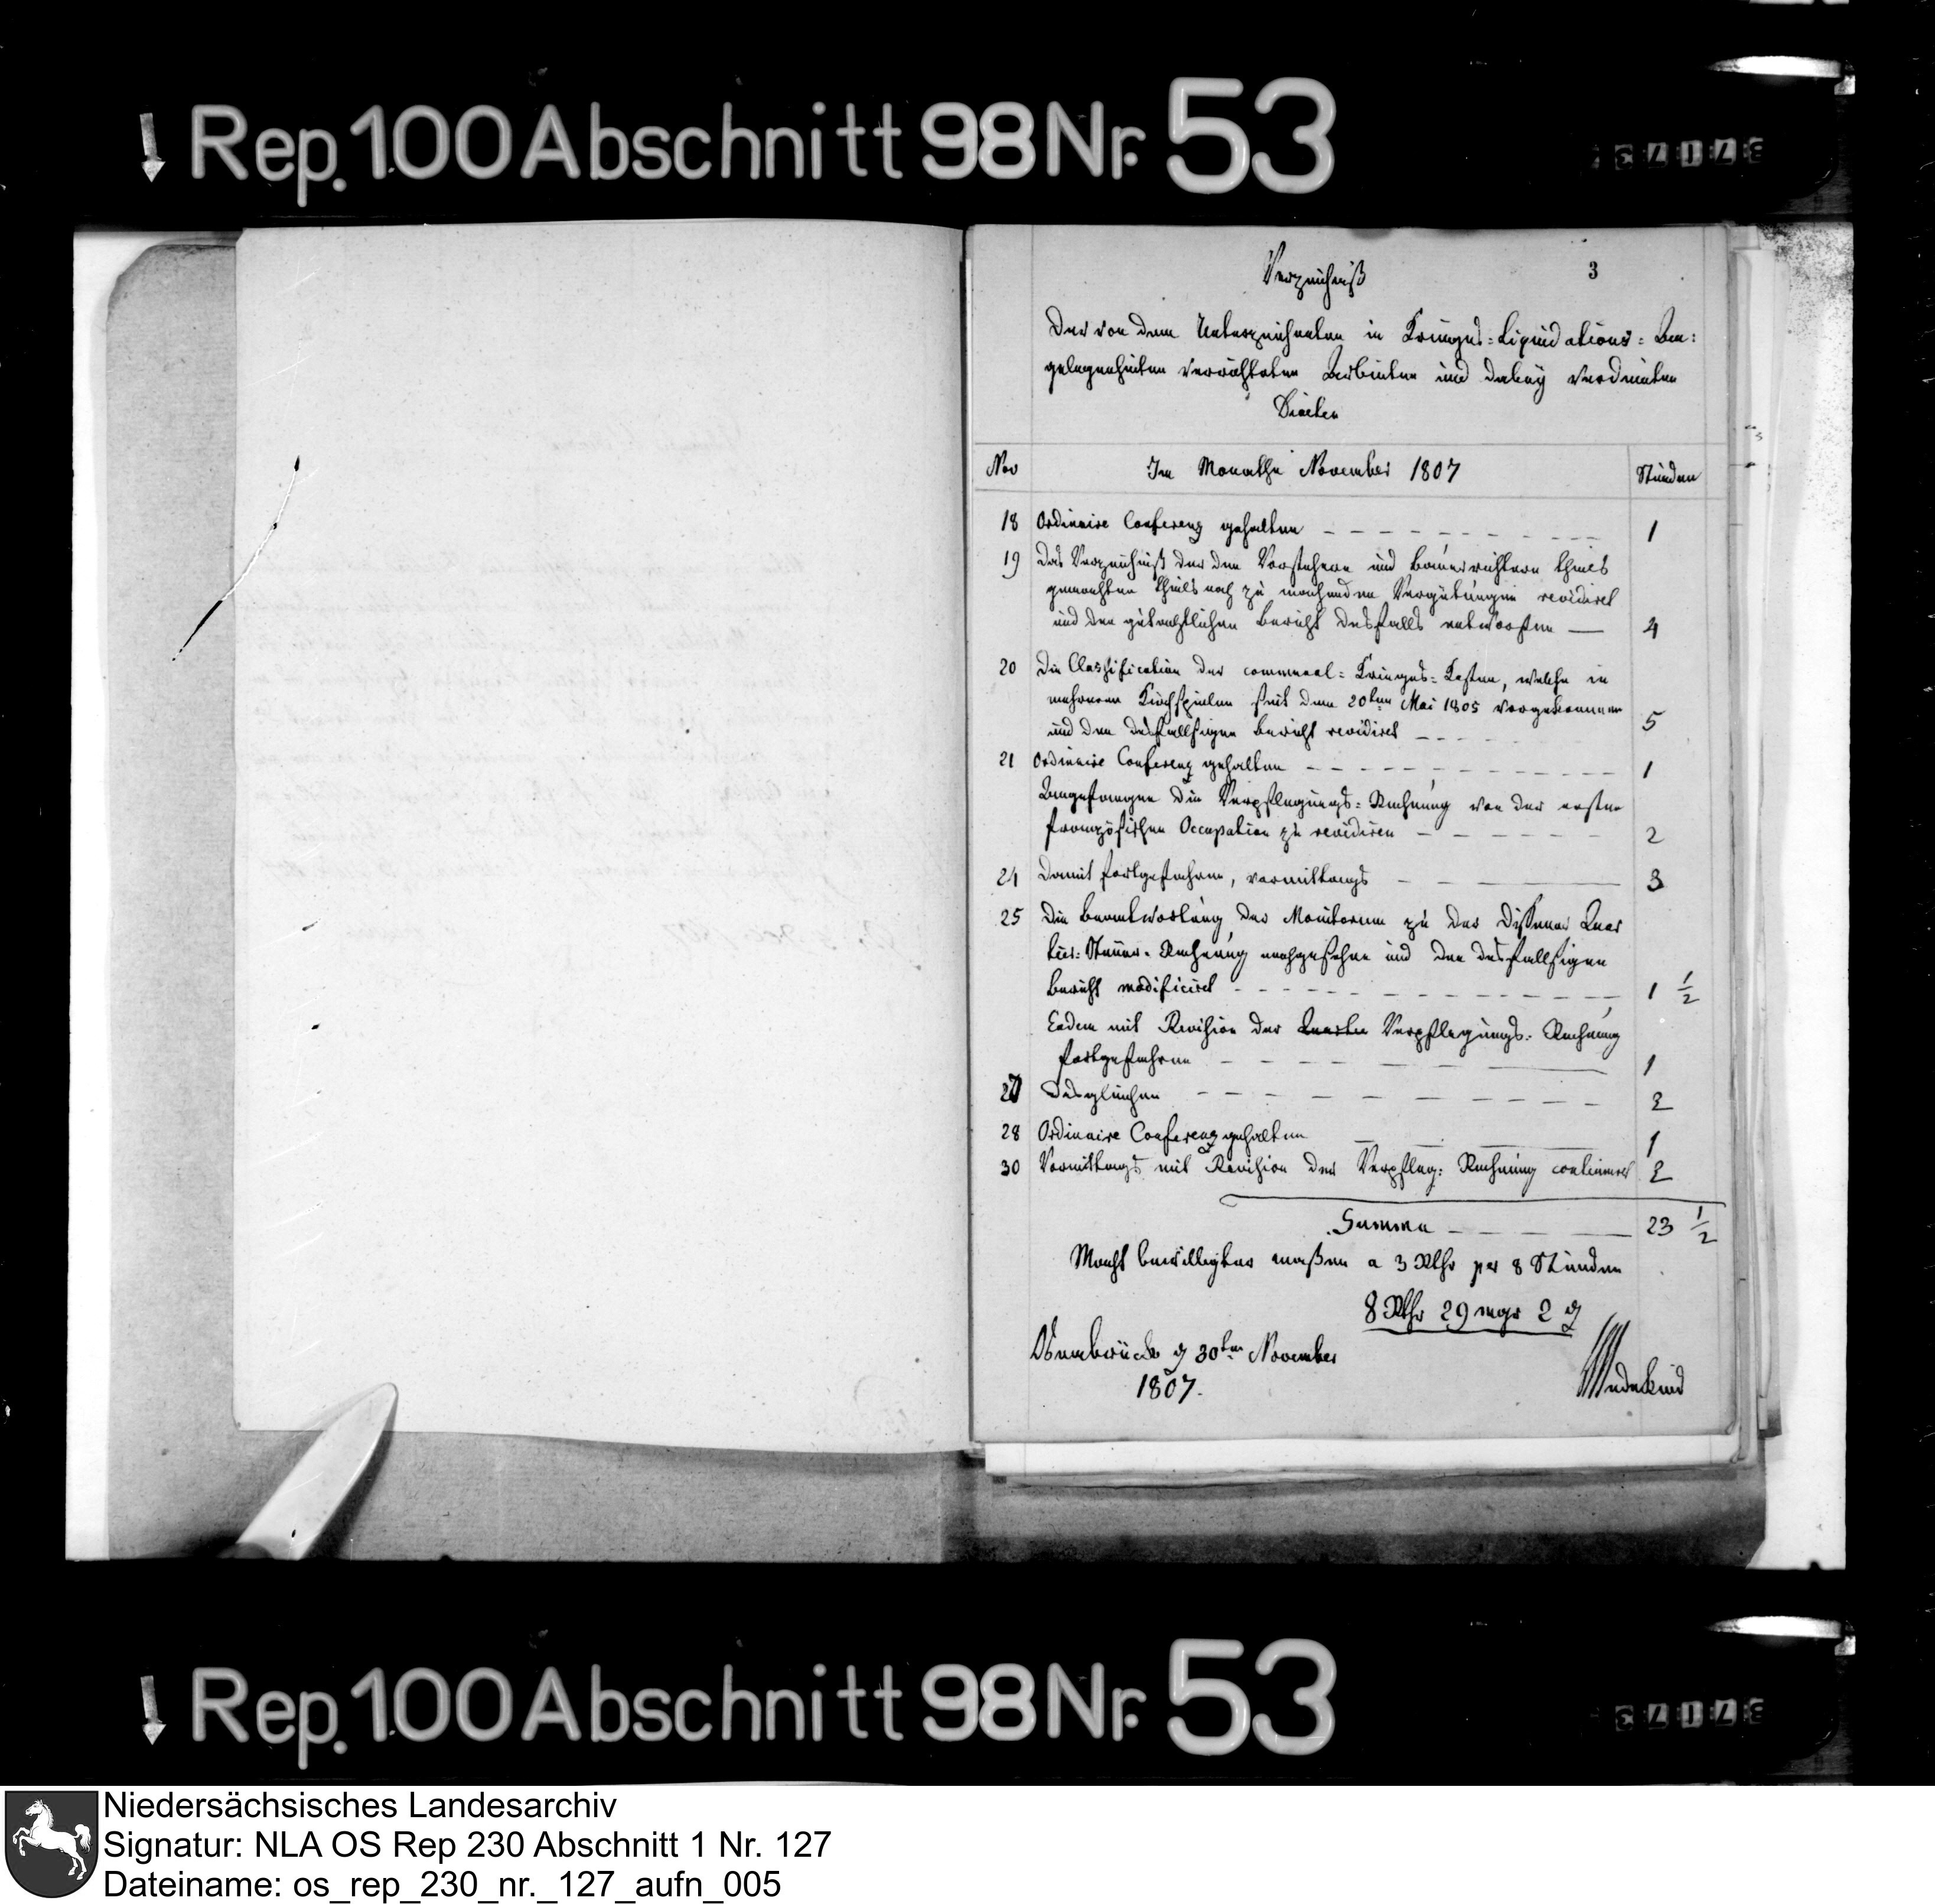 Rep. 100 Abschnitt 98 Nr. 53
3
Verzeichniß
Der von dem Unterzeichneten in Krieges=Liquidations=An:
gelegenheiten verrichteten Arbeiten und dabey verdienten
Diaeten
Nov Im Monathe November 1807 Stunden
18 Ordinaire Conferenz gehalten 1
19 Das Verzeichniß der den Vorstehern und Bauerrichtern theils
gemachten theils noch zu machenden Vergütungen revidirt
und den gutachtlichen Bericht desfalls entworfen 4
20 Die Classification der communal=Krieges=Kosten, welche in
mehreren Kirchspielen seit dem 20ten Mai 1805 vorgekommen
und den desfallsigen Bericht revidirt 5
21 Ordinaire Conferenz gehalten 1
Angefangen die Verpflegungs=Rechnung von der ersten
französischen Occupation zu revidiren 2
24 Damit fortgefahren, vormittags 3
25 Die Beantwortung der Monitorum zu der Dissener Quar
tier=Steuer=Rechnung nachgesehen und den desfallsigen
Bericht modificirt 1 1/2
Eodem mit Revision der Verpflegungs=Rechnung
fortgefahren 1
27 Desgleichen 2
28 Ordinaire Conferenz gehalten 1
30 Vormittags mit Revision der Verpfleg: Rechnung continuirt 2
Summa 23 1/2
Macht bewilligter maßen a 3 Rthr per 8 Stunden
8 Rthr 29 mgr 2 d
Osnabrück d 30ten November
1807.
Wedekind
Rep. 100 Abschnitt 98 Nr. 53
Niedersächsisches Landesarchiv
Signatur: NLA OS Rep 230 Abschnitt 1 Nr. 127
Dateiname: os_rep_230_nr._127_aufn_005